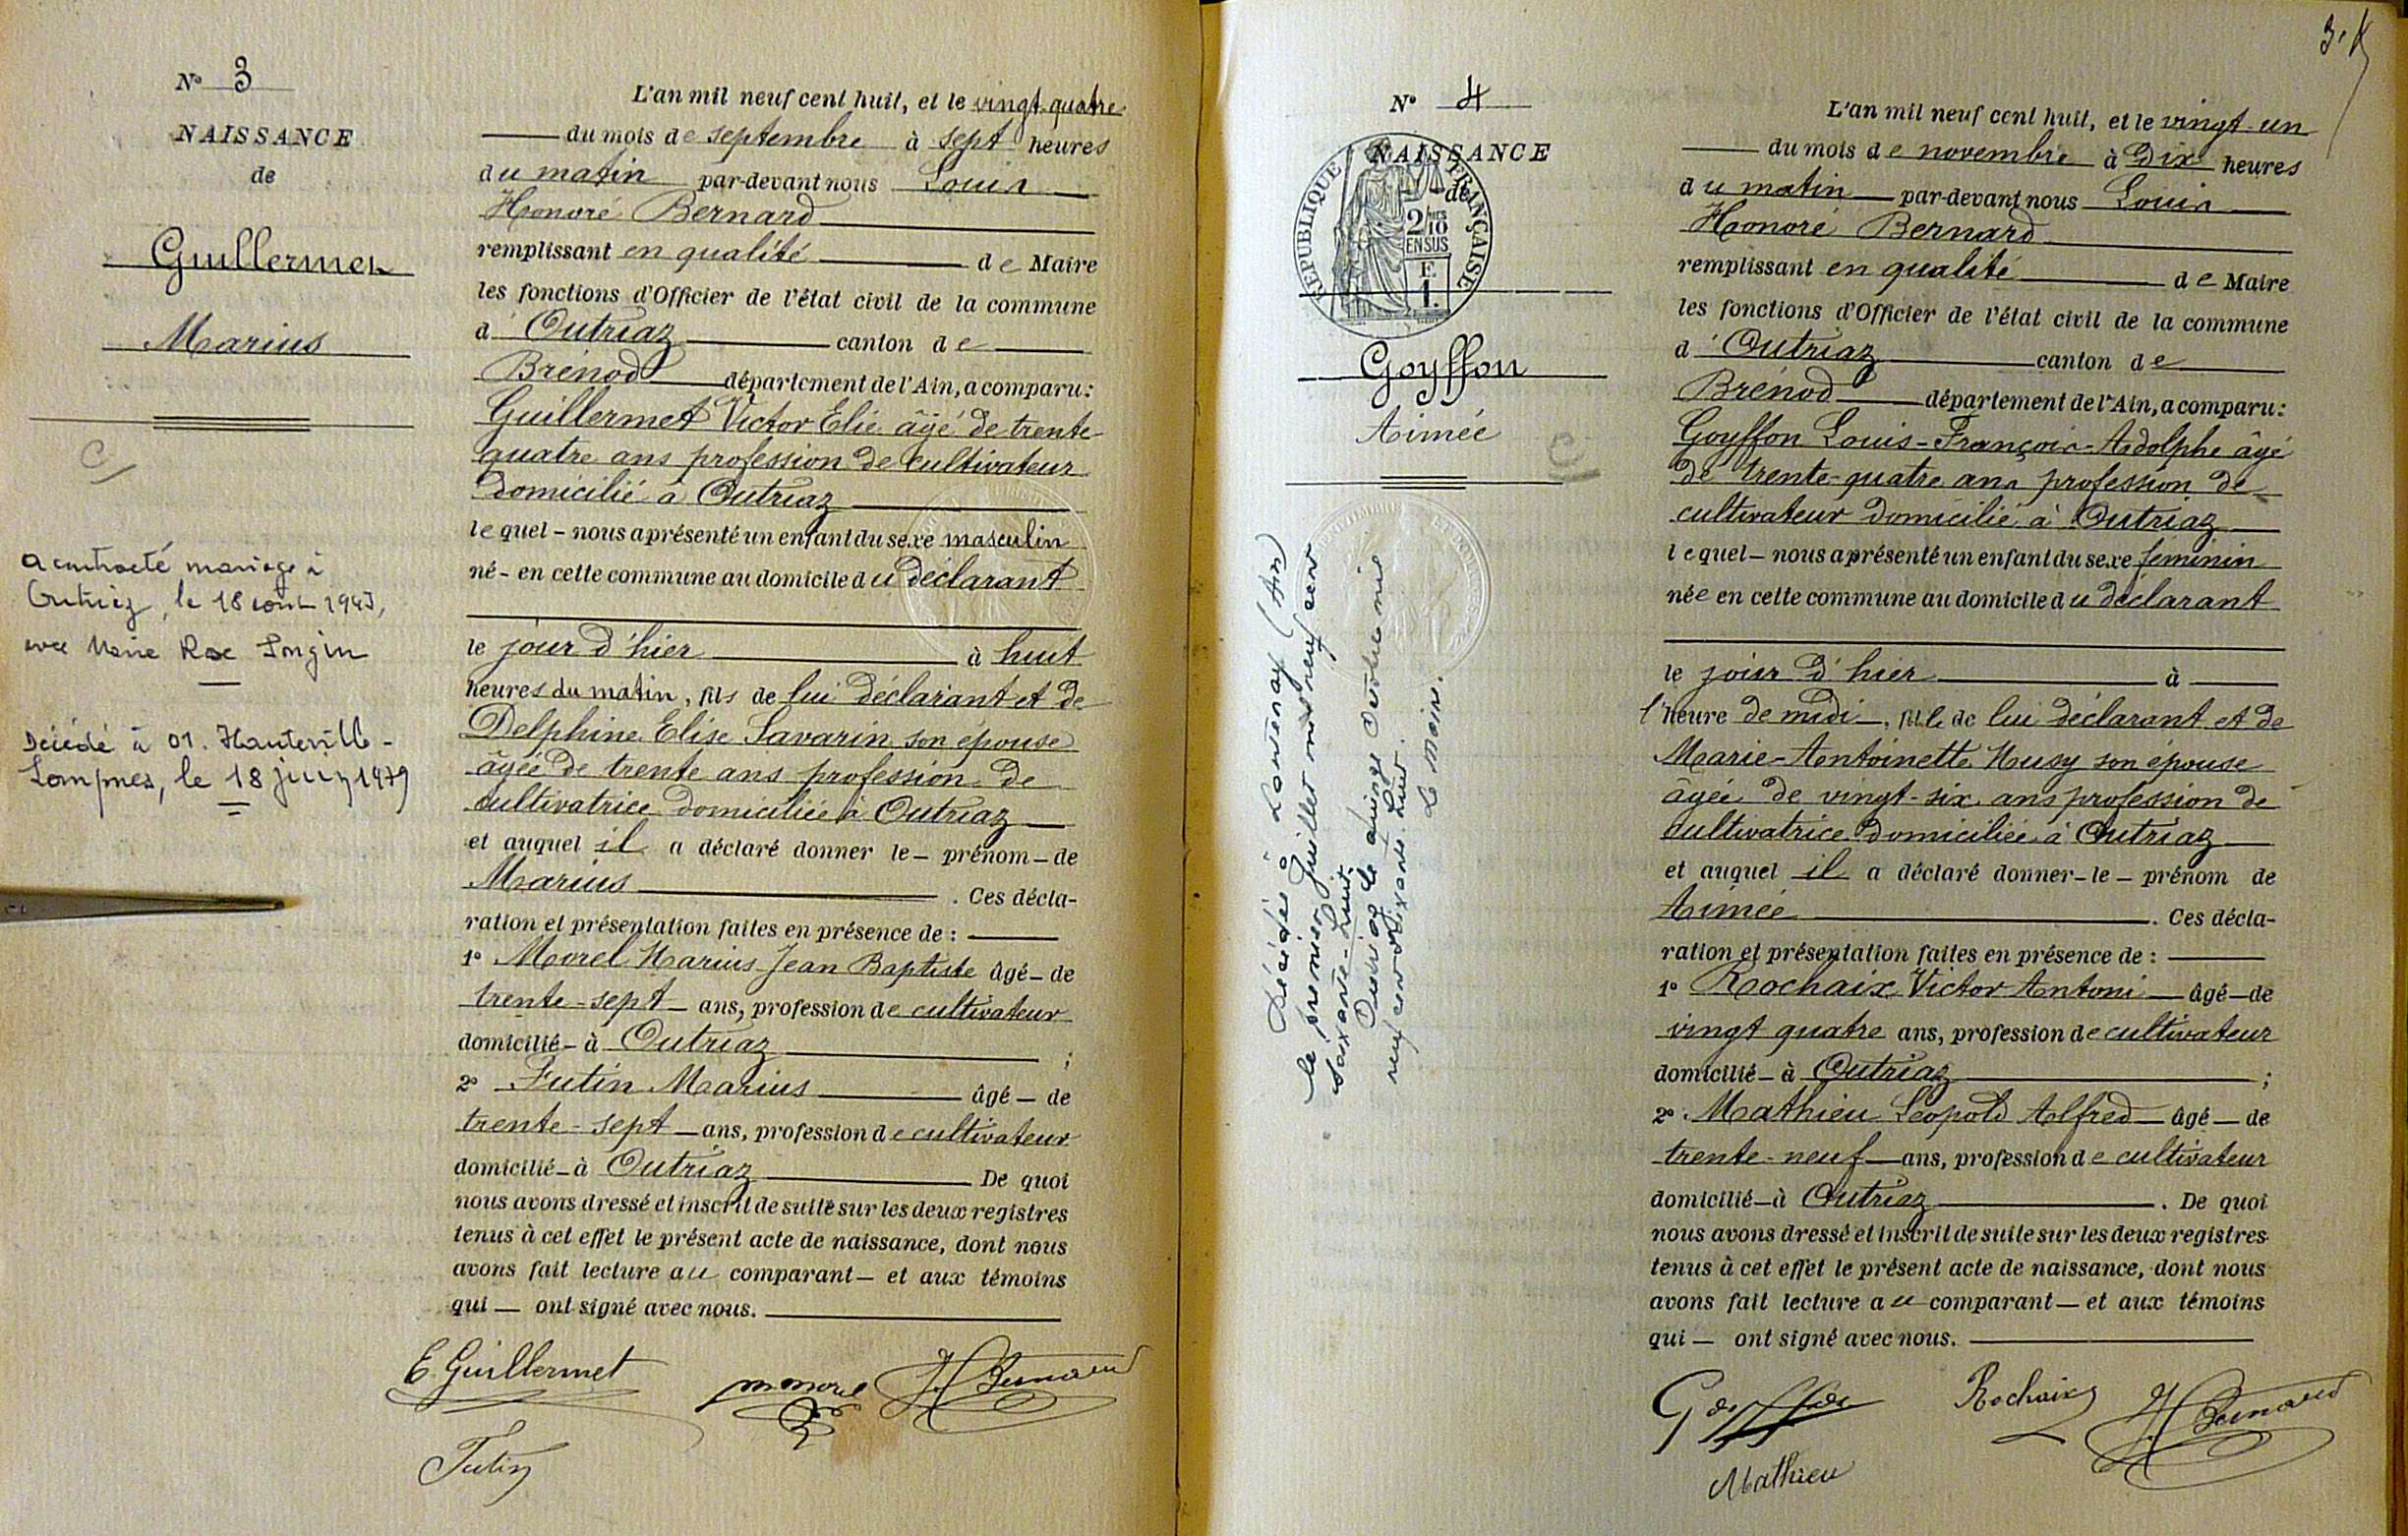 N° 3
NAISSANCE
de
Guillermet
Marius
C
a contracté mariage à
Outriaz, le 18 août 1943,
avec Marie Rose Longin
Décédé à 01. Hauteville-
Lompnes, le 18 juin 1979
L'an mil neuf cent huit, et le vingt-quatre
du mois de septembre à sept heures
du matin par-devant nous Louis
Honoré Bernard
remplissant en qualité de Maire
les fonctions d'Officier de l'état civil de la commune
d'Outriaz canton de
Brénod département de l'Ain, a comparu:
Guillermet Victor Elie âgé de trente
quatre ans profession de cultivateur
domicilié à Outriaz
lequel - nous a présenté un enfant du sexe masculin
né - en cette commune au domicile du déclarant
le jour d'hier à huit
heures du matin, fils de lui déclarant et de
Delphine Elise Savarin son épouse
âgée de trente ans profession de
cultivatrice domiciliée à Outriaz
et auquel il a déclaré donner le - prénom - de
Marius . Ces décla-
ration et présentation faites en présence de :
1° Morel Marius Jean Baptiste âgé - de
trente-sept - ans, profession de cultivateur
domicilié - à Outriaz ;
2° Futin Marius âgé - de
trente-sept - ans, profession de cultivateur
domicilié - à Outriaz De quoi
nous avons dressé et inscrit de suite sur les deux registres
tenus à cet effet le présent acte de naissance, dont nous
avons fait lecture au comparant - et aux témoins
qui - ont signé avec nous.
E Guillermet
m morel
H Bernard
Futin
3.
N° 4
NAISSANCE
de
RÉPUBLIQUE FRANÇAISE
2/10
EN SUS
F.
1.
Goyffon
Aimée
C
Décédée à Lantenay (Ain)
le premier Juillet mil neuf cent
soixante-huit.
Outriaz le quinze Octobre mil
neuf cent soixante huit.
Le Maire.
L'an mil neuf cent huit, et le vingt-un
du mois de novembre à Dix heures
du matin par-devant nous Louis
Honoré Bernard
remplissant en qualité de Maire
les fonctions d'Officier de l'état civil de la commune
d'Outriaz canton de
Brénod département de l'Ain, a comparu:
Goyffon Louis-François-Adolphe âgé
de trente-quatre ans profession de
cultivateur domicilié à Outriaz
lequel - nous a présenté un enfant du sexe féminin
née en cette commune au domicile du déclarant
le jour d'hier à
l'heure de midi, fille de lui déclarant et de
Marie-Antoinette Husy son épouse
âgée de vingt-six ans profession de
cultivatrice domiciliée à Outriaz
et auquel il a déclaré donner - le - prénom de
Aimée . Ces décla-
ration et présentation faites en présence de :
1° Rochaix Victor Antoni âgé - de
vingt quatre ans, profession de cultivateur
domicilié - à Outriaz ;
2° Mathieu Léopold Alfred âgé - de
trente-neuf - ans, profession de cultivateur
domicilié - à Outriaz . De quoi
nous avons dressé et inscrit de suite sur les deux registres
tenus à cet effet le présent acte de naissance, dont nous
avons fait lecture au comparant - et aux témoins
qui - ont signé avec nous.
Goyffon
Rochaix
H Bernard
Mathieu